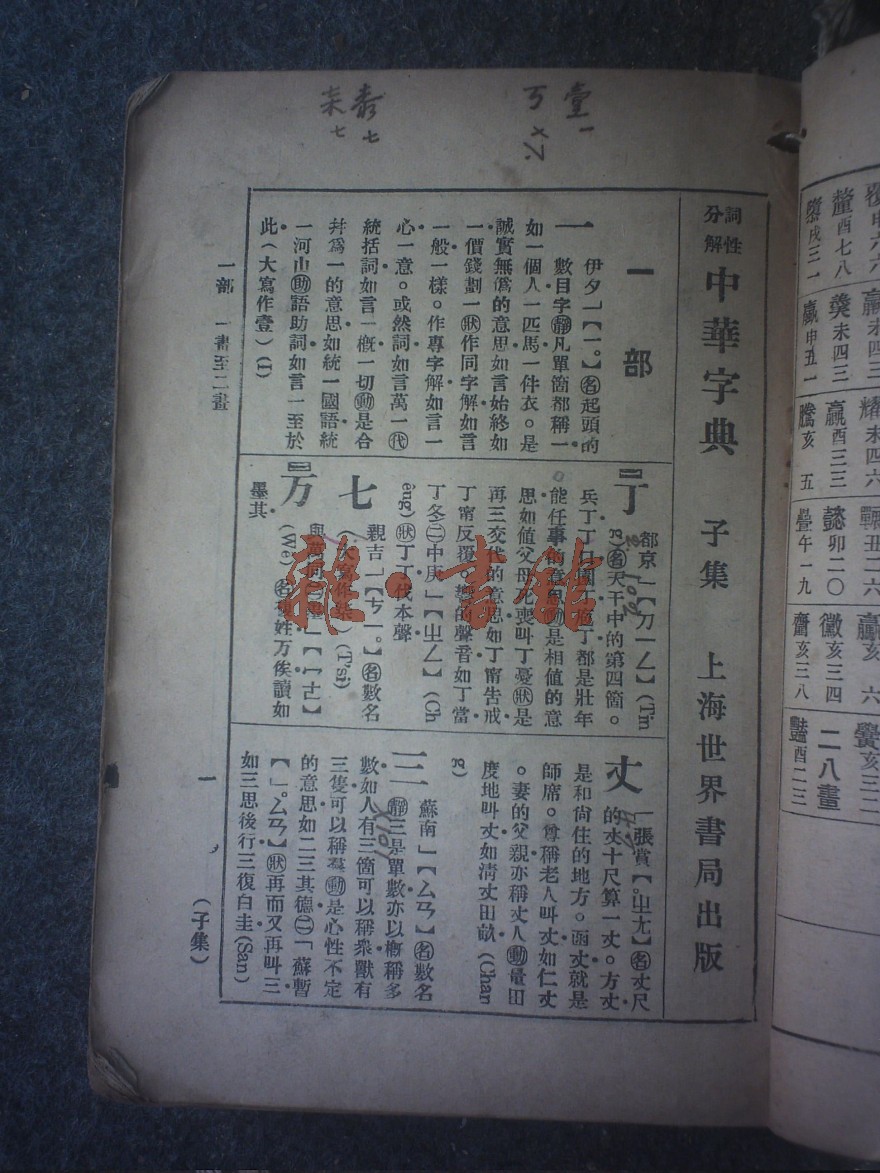 壹一
丂
柒七
七
詞性分解 中華字典 子集 上海世界書局出版
一部
一 伊夕」【一。】㊔名起頭的
數目字靜凡單箇都稱一
如一個人一匹馬一件衣。是
誠實無僞的意思如言始終如
一價錢劃一狀作同字解如言
一般一樣。作專字解如言一
心一意。或然詞如言萬一代
統括詞如言一概一切動是合
幷爲一的意思如統一國語統
一河山助語助詞如言一至於
此(大寫作壹)(I)
丁 都京」【ㄉㄧㄥ】(Tin
g)名天干中的第四箇。
兵丁丁口園丁庖丁都是壯年
能任事的意思動是相値的意
思如値父母死喪叫丁憂狀是
再三交代的意思如丁甯告戒
丁甯反覆。響的聲音如丁當
丁冬㊁中庚」【ㄓㄥ】(Ch
êng)狀丁丁伐木聲
七 親吉」【ㄘㄧ。】名數名
(大寫作柒)(T'si)
万
(Wê)名複姓万俟讀如
墨其
丈 張賞【ㄓㄤ】名丈尺
的丈十尺算一丈。方丈
是和尙住的地方。函丈就是
師席。尊稱老人叫丈如仁丈
。妻的父親亦稱丈人動量田
度地叫丈如淸丈田畝(Chan
g)
三 蘇南」【ㄙㄢ】名數名
靜三是單數亦以槪稱多
數如人有三箇可以稱衆獸有
三隻可以稱羣動是心性不定
的意思如二三其德㊁「蘇暫
【ㄙㄢ】狀再而又再叫三
如三思後行三復白圭(San)
一部 一畫至二畫
一
(子集)
雜·書館
釐酉七八
羹未四三
贏申丑一
耀未四六
贏酉三三
騰亥五
懿卯二〇
疊午一九
贏亥六
黴亥三四
齎亥三八
釁亥三二
二八畫
豔酉二三